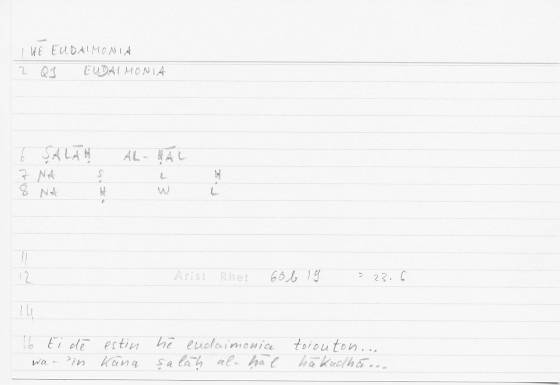 1 HĒ EUDAIMONIA
2 QS EUDAIMONIA
6 ṢALĀḤ AL-ḤĀL
7 NA Ṣ L Ḥ
8 NA Ḥ W L
11
12 Arist Rhet 60b 19 = 23.6
14
16 Ei dē estin hē eudaimonia toiouton...
wa-ʾin kāna ṣalāḥ al-ḥāl hākadhā...